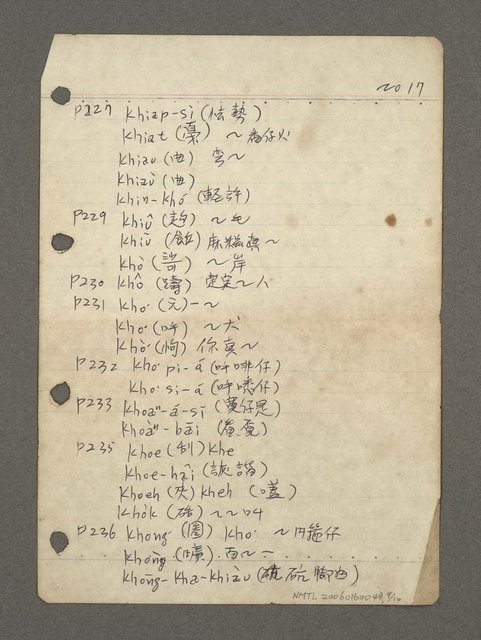 NO 17
P227 khiap-sì (怯勢)
khiat (藁) ~番仔火
khiau (曲) 彎~
khiaù (曲)
khin-khó (輕許)
P229 khiû (趜) ~毛
khiū (飯) 麻糍真~
khò (哿) ~岸
P230 khô (躊) 定定~人
P231 kho͘ (元) 一~
kho͘ (呼) ~犬
khò͘ (怐) 你真~
P232 kho͘ pi-á (呼啡仔)
kho͘ si-á (呼嘶仔)
P233 khoaⁿ-á-sī (寬仔是)
khoàⁿ-bāi (看覔)
P235 khoe (刮) khe
khoe-hâi (詼諧)
khoeh (夾) kheh (嗑)
kho̍k (硞) ~~叫
P236 khong (圈) kho͘ ~內箍仔
khòng (曠) 百~一
khōng-kha-khiàu (硿脚曲)
NMTL 20060160049, 9/10